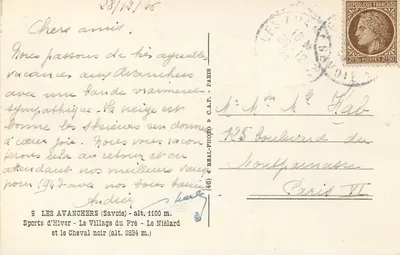 28/12/46
Chers amis.
Nous passons de très agréables
vacances aux Avanchers
avec une bande vraiment
sympathique. La neige est
bonne les skieurs s'en donnent
à cœur joie. Nous vous
au retour et en
attendant nos meilleurs vœux
pour 1947 avec nos bons baisers
Andrée
9 LES AVANCHERS (Savoie) - alt. 1100 m.
Sports d'Hiver - Le Village du Pré - Le Niélard
et le Cheval noir (alt. 2834 m.)
(46) REAL-PHOTO C.A.P. - PARIS
SAVOIE
M. Mme
125 Boulevard du
Montparnasse
Paris VI